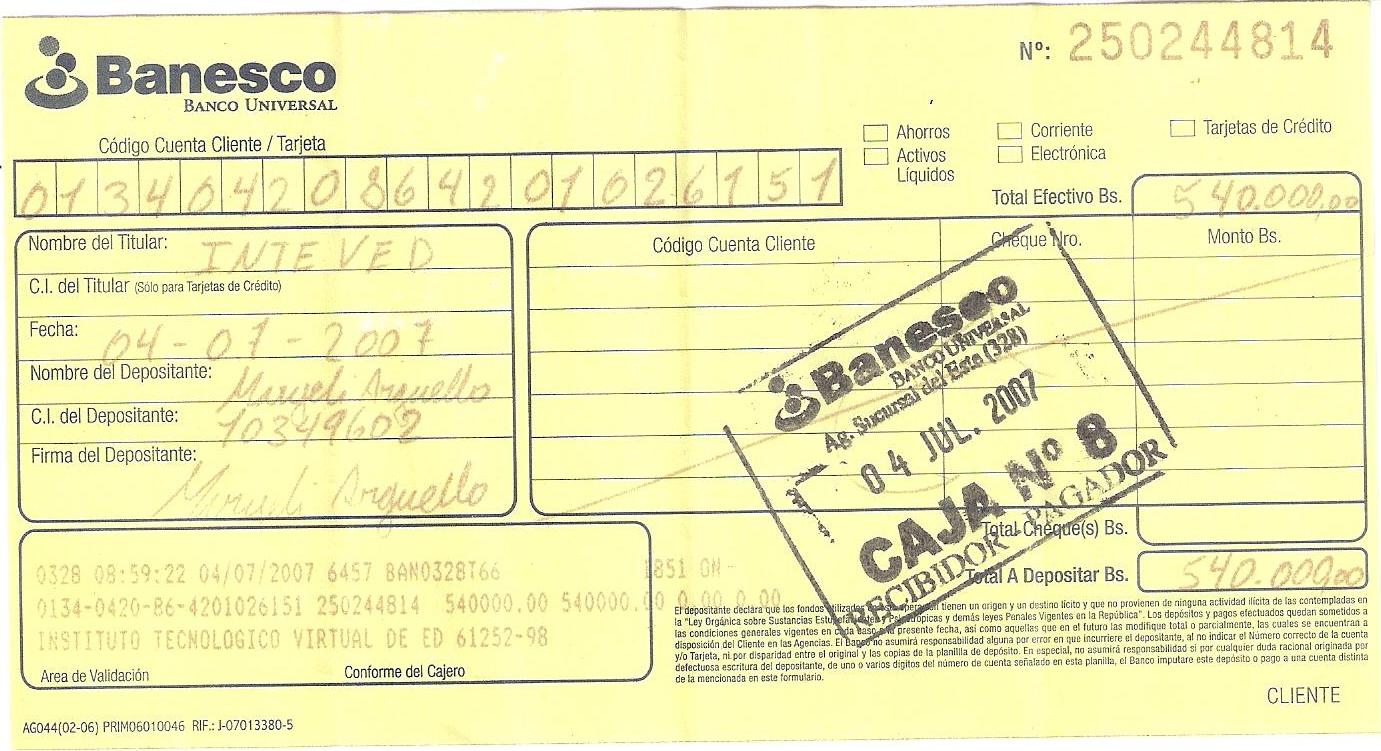 Banesco
BANCO UNIVERSAL
Nº: 250244814
Código Cuenta Cliente / Tarjeta
Ahorros
Corriente
Tarjetas de Crédito
Activos Líquidos
Electrónica
01340420864201026151
Total Efectivo Bs. 540.000,00
Nombre del Titular: INTEVED
C.I. del Titular (Sólo para Tarjetas de Crédito)
Fecha: 04-07-2007
Nombre del Depositante: Arguello
C.I. del Depositante: 10349602
Firma del Depositante: Arguello
Código Cuenta Cliente
Cheque Nro.
Monto Bs.
Banesco
BANCO UNIVERSAL
Ag. Sucursal del Este (328)
04 JUL. 2007
CAJA Nº 8
RECIBIDOR - PAGADOR
Total Cheque(s) Bs.
Total A Depositar Bs. 540.000,00
0328 08:59:22 04/07/2007 6457 BAN0328T66 1851 ON-
0134-0420-86-4201026151 250244814 540000.00 540000.00 0.00 0.00
INSTITUTO TECNOLOGICO VIRTUAL DE ED 61252-98
Area de Validación
Conforme del Cajero
El depositante declara que los fondos utilizados en esta operación tienen un origen y un destino lícito y que no provienen de ninguna actividad ilícita de las contempladas en
la "Ley Orgánica sobre Sustancias Estupefacientes y Psicotrópicas y demás leyes Penales Vigentes en la República". Los depósitos y pagos efectuados quedan sometidos a
las condiciones generales vigentes en cada caso a la presente fecha, así como aquellas que en el futuro las modifique total o parcialmente, las cuales se encuentran a
disposición del Cliente en las Agencias. El Banco no asumirá responsabilidad alguna por error en que incurriere el depositante, al no indicar el Número correcto de la cuenta
y/o Tarjeta, ni por disparidad entre el original y las copias de la planilla de depósito. En especial, no asumirá responsabilidad si por cualquier duda racional originada por
defectuosa escritura del depositante, de uno o varios dígitos del número de cuenta señalado en esta planilla, el Banco imputare este depósito o pago a una cuenta distinta
de la mencionada en este formulario.
CLIENTE
AG044(02-06) PRIM06010046 RIF.: J-07013380-5